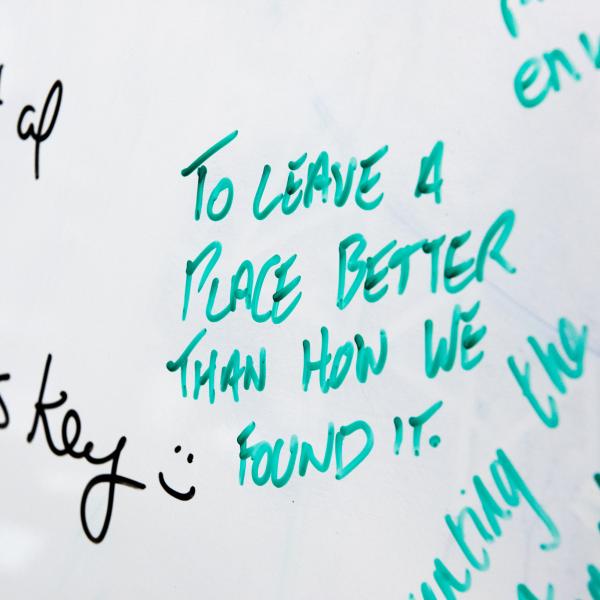 TO LEAVE A
PLACE BETTER
THAN HOW WE
FOUND IT.
key :)
the